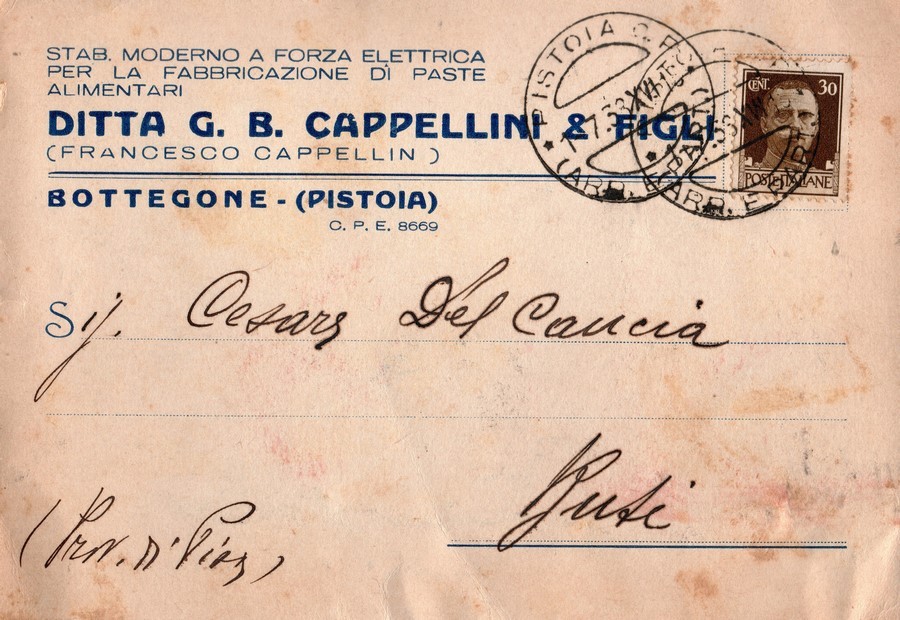 STAB. MODERNO A FORZA ELETTRICA
PER LA FABBRICAZIONE DI PASTE
ALIMENTARI
DITTA G. B. CAPPELLINI & FIGLI
(FRANCESCO CAPPELLIN )
BOTTEGONE - (PISTOIA)
C. P. E. 8669
PISTOIA
(ARR. E PART.)
ARR. E
CENT. 30
POSTE ITALIANE
Sig. Cesare Del Caucia
Buti
(Prov. di Pisa)